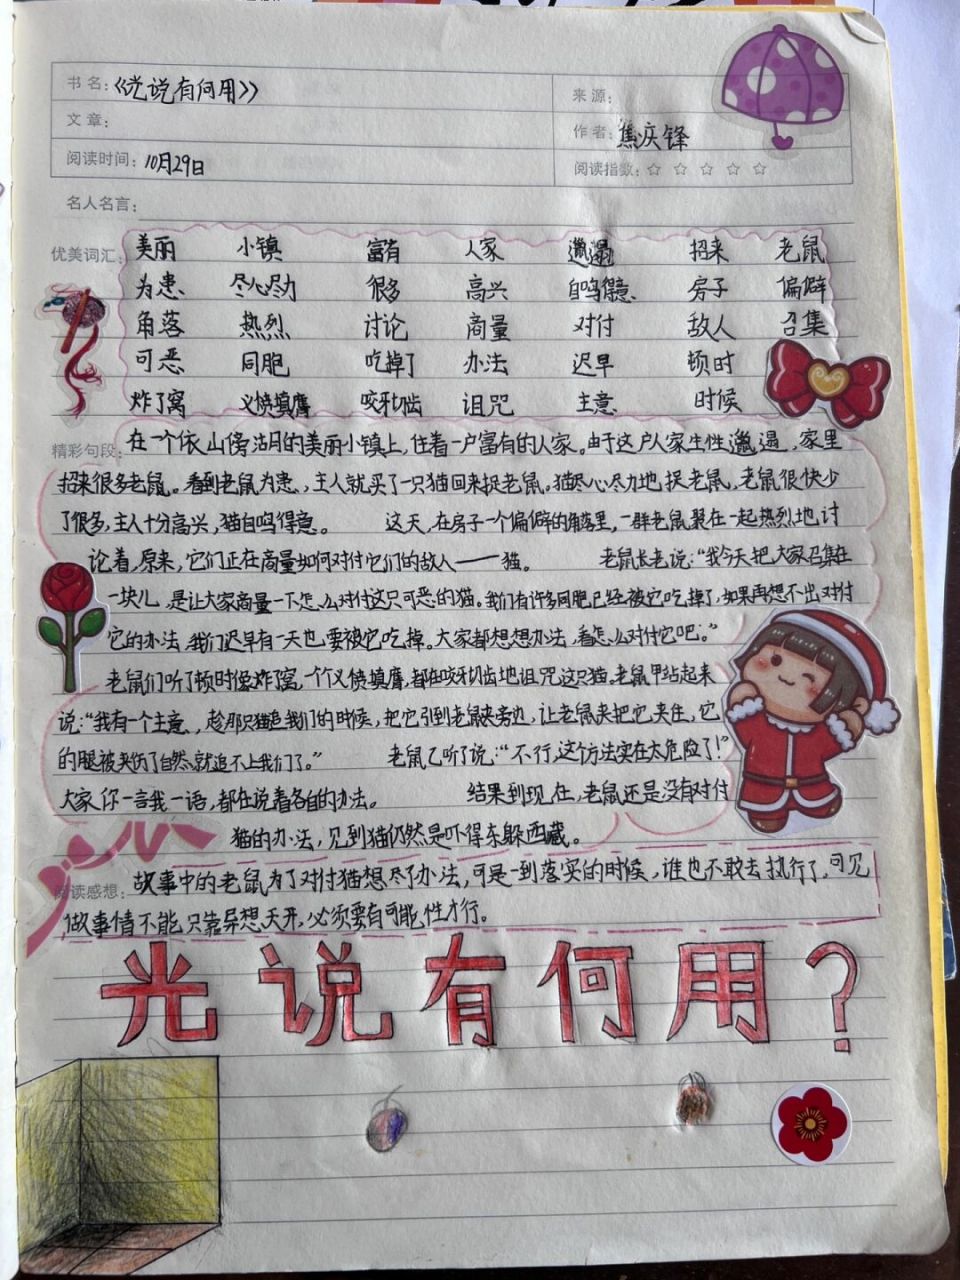 书名：《光说有何用》
来源：
文章：
作者：焦庆锋
阅读时间：10月29日
阅读指数：☆ ☆ ☆ ☆ ☆
名人名言：
优美词汇：美丽 小镇 富有 人家 邋遢 招来 老鼠
为患 尽心尽力 很多 高兴 自鸣得意 房子 偏僻
角落 热烈 讨论 商量 对付 敌人 召集
可恶 同胞 吃掉了 办法 迟早 顿时
炸了窝 义愤填膺 咬牙切齿 诅咒 主意 时候
精彩句段：在一个依山傍沽月的美丽小镇上，住着一户富有的人家。由于这户人家生性邋遢，家里
招来很多老鼠。看到老鼠为患，主人就买了一只猫回来捉老鼠。猫尽心尽力地捉老鼠，老鼠很快少
了很多，主人十分高兴，猫自鸣得意。 这天，在房子一个偏僻的角落里，一群老鼠聚在一起热烈地讨
论着，原来，它们正在商量如何对付它们的敌人——猫。 老鼠长老说：“我今天把大家召集在
一块儿，是让大家商量一下怎么对付这只可恶的猫。我们有许多同胞已经被它吃掉了，如果再想不出对付
它的办法，我们迟早有一天也要被它吃掉。大家都想想办法，看怎么对付它吧。”
老鼠们听了顿时像炸窝，一个个义愤填膺，都在咬牙切齿地诅咒这只猫。老鼠甲站起来
说：“我有一个主意，趁那只猫追我们的时候，把它引到老鼠夹旁边，让老鼠夹把它夹住，它
的腿被夹伤了自然就追不上我们了。” 老鼠乙听了说：“不行，这个方法实在太危险了！”
大家你一言我一语，都在说着各自的办法。 结果到现在，老鼠还是没有对付
猫的办法，见到猫仍然是吓得东躲西藏。
阅读感想：故事中的老鼠为了对付猫想尽了办法，可是一到落实的时候，谁也不敢去执行了，可见
做事情不能只靠异想天开，必须要有可能性才行。
光说有何用？